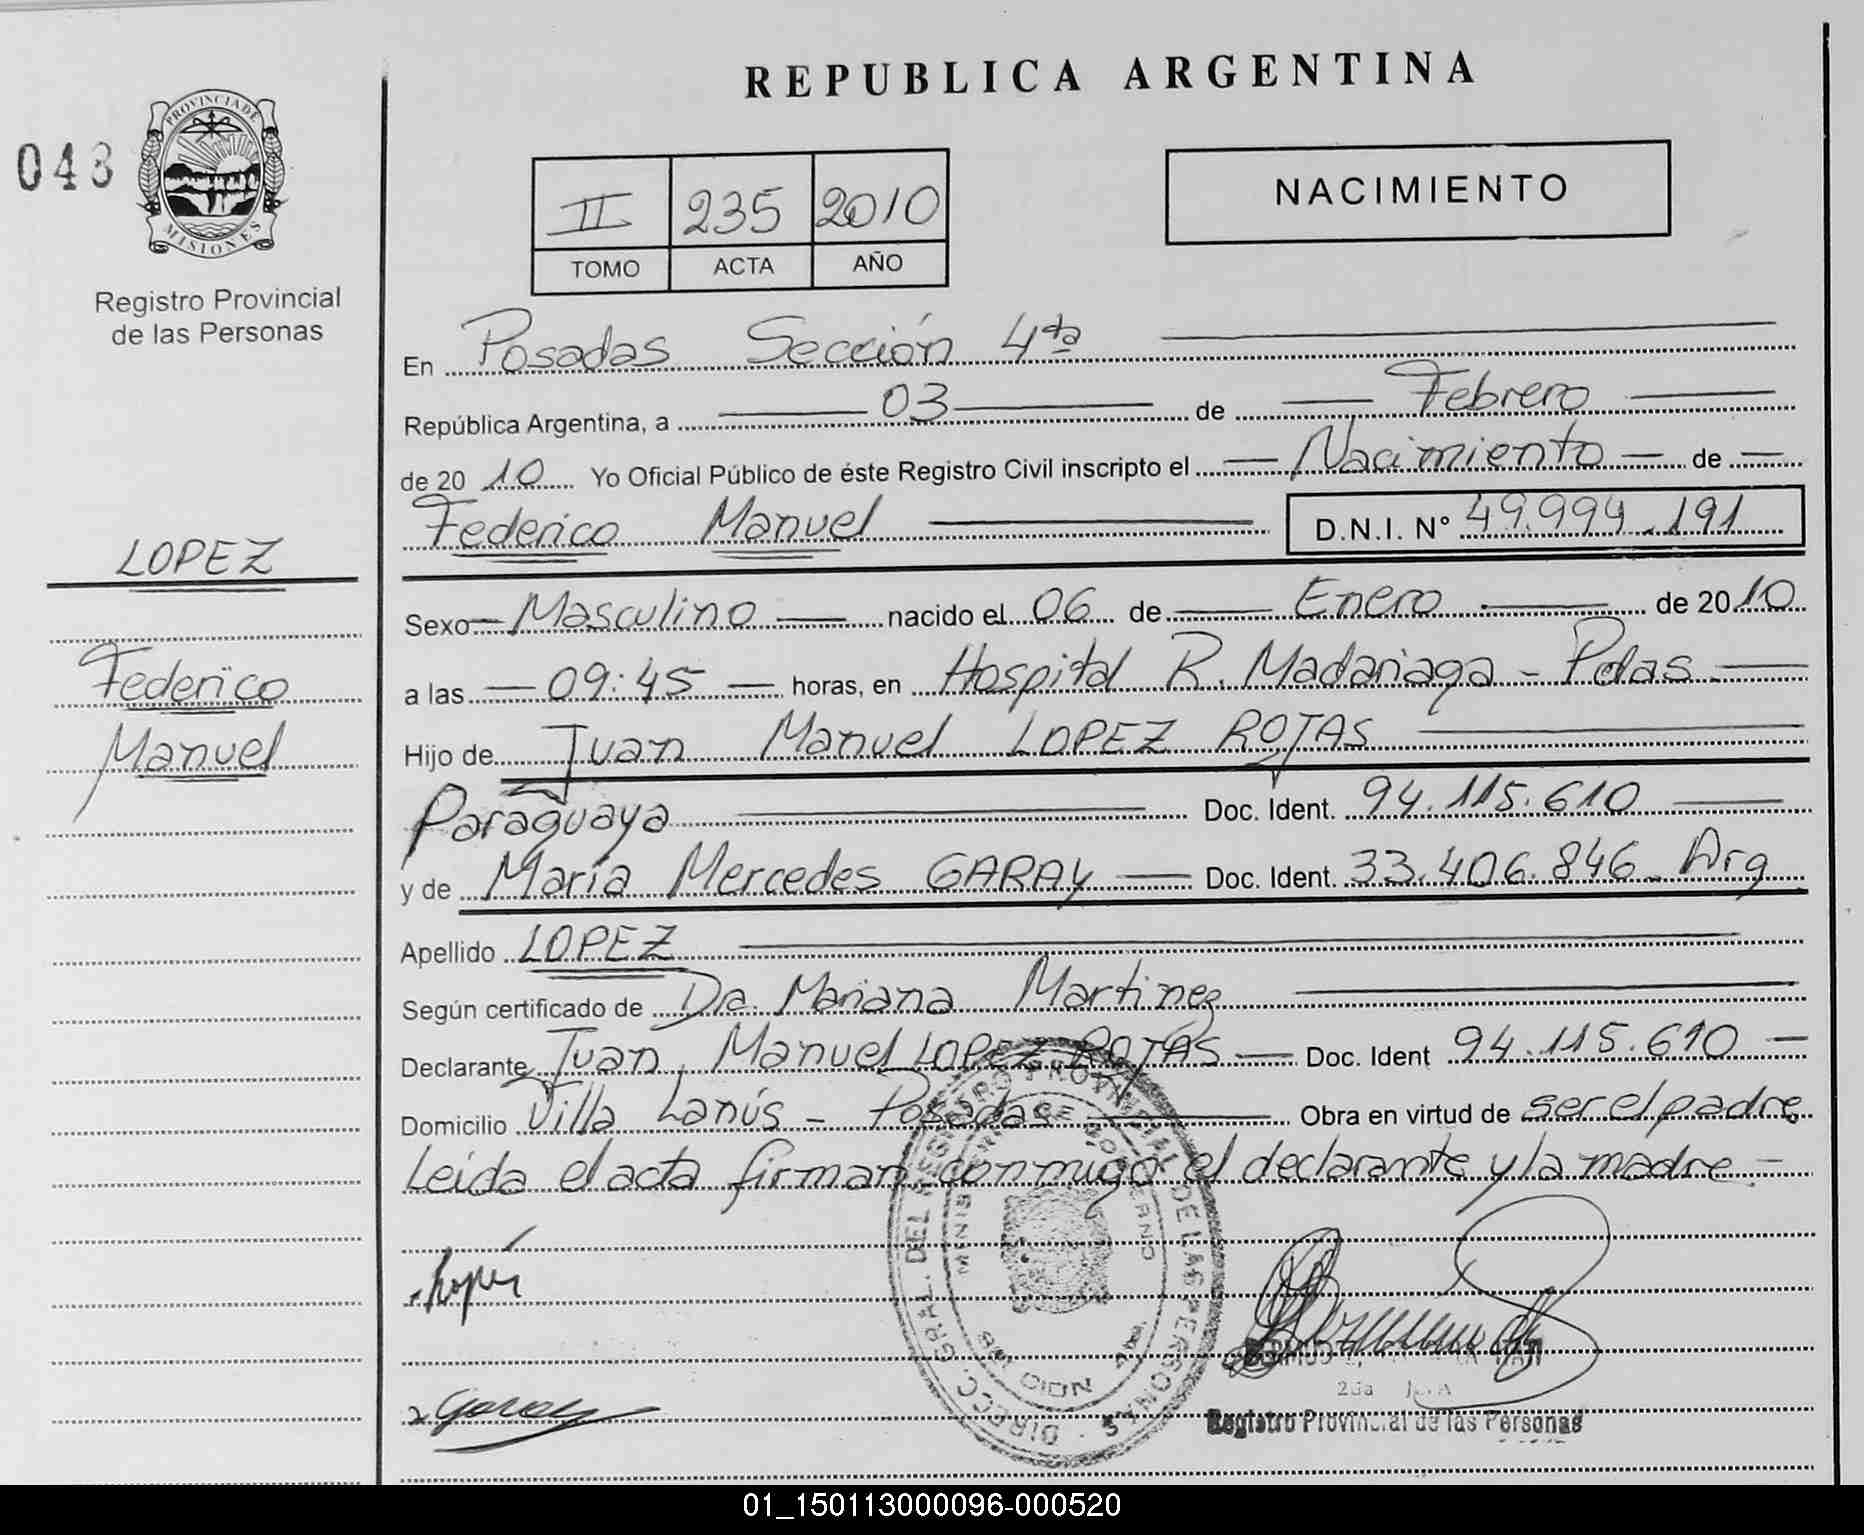 REPUBLICA ARGENTINA
043
PROVINCIA DE
MISIONES
Registro Provincial
de las Personas
II 235 2010
TOMO ACTA AÑO
NACIMIENTO
En Posadas Sección 4ta
República Argentina, a 03 de Febrero
de 2010 Yo Oficial Público de éste Registro Civil inscripto el Nacimiento de
Federico Manuel D.N.I. N° 49.994.191
LOPEZ
Federico
Manuel
Sexo Masculino nacido el 06 de Enero de 2010
a las 09:45 horas, en Hospital R. Madariaga - Pdas.
Hijo de Juan Manuel LOPEZ ROJAS
Paraguaya Doc. Ident. 94.115.610
y de María Mercedes GARAY Doc. Ident. 33.406.846. Arg
Apellido LOPEZ
Según certificado de Dra. Mariana Martinez
Declarante Juan Manuel LOPEZ ROJAS Doc. Ident 94.115.610
Domicilio Villa Lanús - Posadas Obra en virtud de ser el padre
Leida el acta firman conmigo el declarante y la madre
DIRECC. GRAL. DEL REGISTRO PROVINCIAL DE LAS PERSONAS
MINISTERIO DE GOBIERNO
Lopez
Garay
Registro Provincial de las Personas
01_150113000096-000520